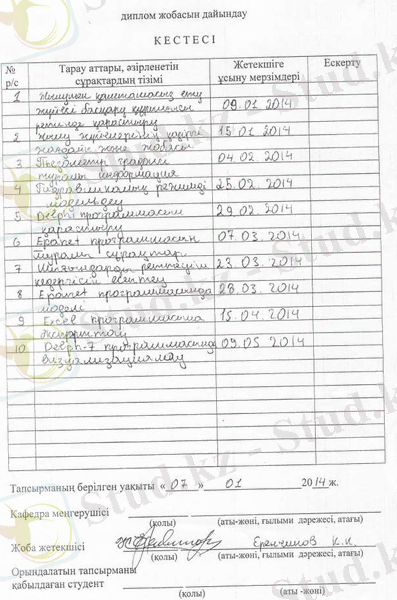 диплом жобасын дайындау
К Е С Т Е С І
№ р/с
Тарау аттары, әзірленетін сұрақтардың тізімі
Жетекшіге ұсыну мерзімдері
Ескерту
1 Жылумен қамтамасыз ету
жүйесі басқару құрылғысы
ретінде қарастыру 09.01 2014
2 Жылу жүйелерінің қазіргі
жағдайы және жобасы 15 01 2014
3 Пьезометр графигі
туралы информация 04 02 2014
4 Гидравликалық режимді
модельдеу 25.02. 2014
5 Delphi программасын
қарастыру 29.02. 2014
6 Epanet программасын
туралы сұрақтар. 07 03. 2014.
7 реттегіш
кедергісін есептеу 23.03. 2014
8 Epanet программасында
моделі 28.03 2014
9 Excel программасына
экспорттау 15.04. 2014
10 Delphi-7 программасында
визуализациялау 09.05 2014
Тапсырманың берілген уақыты « 07 » 01 2014 ж.
Кафедра меңгерушісі
(қолы) (аты-жөні, ғылыми дәрежесі, атағы)
Жоба жетекшісі К.К
(қолы) (аты-жөні, ғылыми дәрежесі, атағы)
Орындалатын тапсырманы
қабылдаған студент
(қолы) (аты -жөні)
Stud.kz - Stud.kz